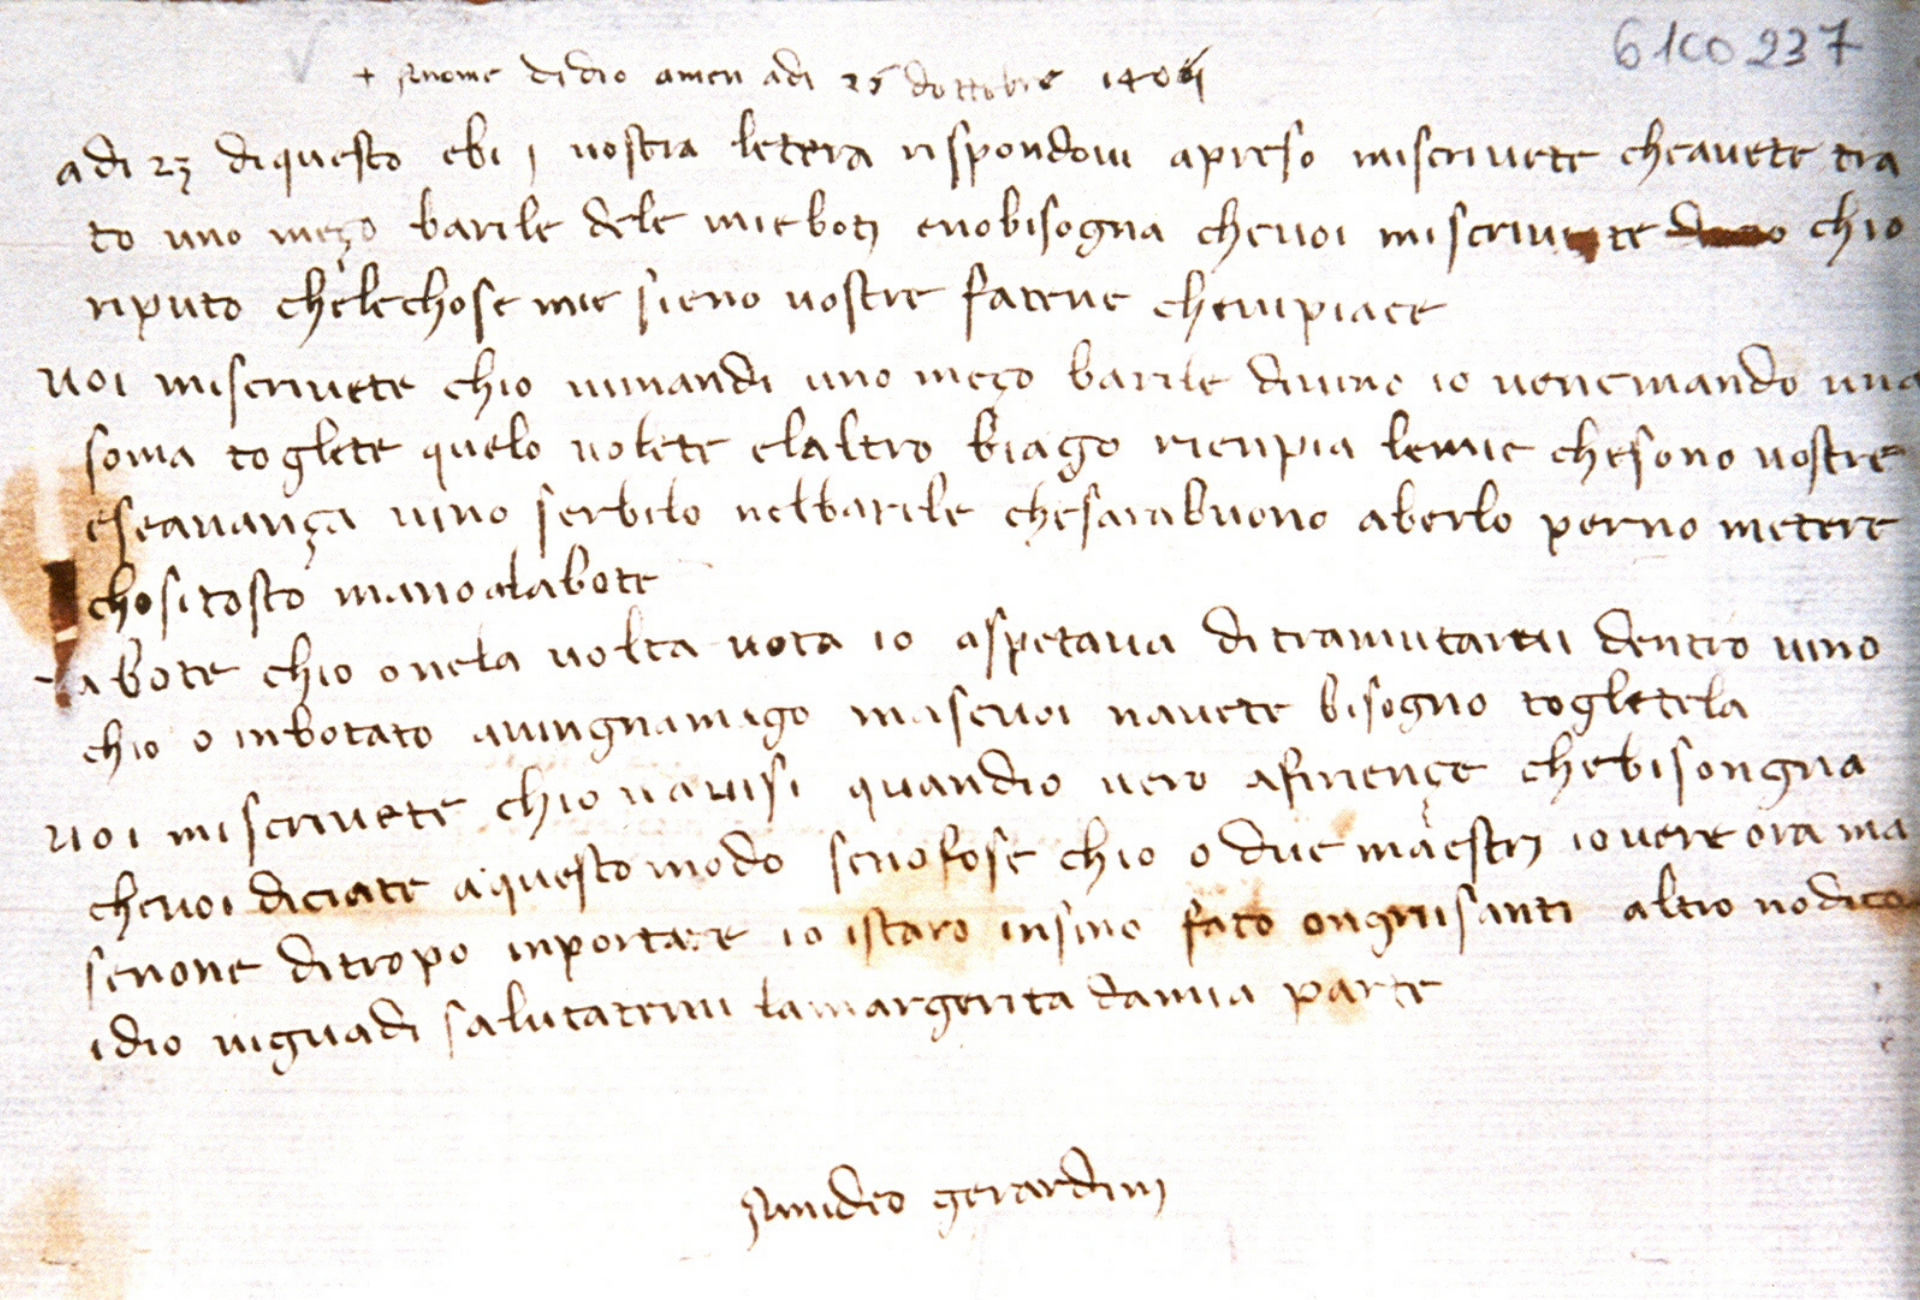 6100237
+ Al nome di dio amen adi 25 dottobre
adi 23 diquesto ebi j vostra letera rispondovi apreso miscrivete cheavete tra
to uno mezo barile dele mie boti enobisogna chevoi miscrivete chio
riputo chelechose mie sieno vostre fatene chevipiace
voi miscrivete chio vimandi uno mezo barile divino io venemando una
soma toglete quelo volete elaltro biago rienpia lemie chesono vostre
eseavanza vino serbilo nelbarile chesarabuono aberlo perno metere
chositosto mano alabote
labote chio onela volta vota io aspetava ditramutarvi dentro vino
chio o inbotato avingnamago masevoi navete bisogno togletela
voi miscrivete chio navisi quandio vero afirenze chebisongna
chevoi diciate aquestomodo senofose chio o due maestri iovere ora ma
senone ditropo inportare io istaro insino fato ongnisanti altro nodico
idio viguadi salutatemi lamargerita damia parte
gerardini